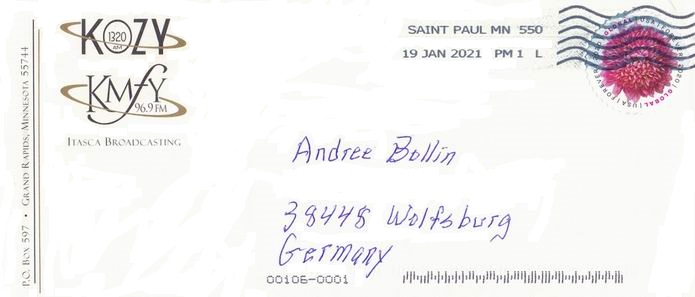 KOZY
1320
AM
KMFY
96.9 FM
ITASCA BROADCASTING
P.O. BOX 597 • GRAND RAPIDS, MINNESOTA 55744
SAINT PAUL MN 550
19 JAN 2021 PM 1 L
GLOBAL | USA | FOREVER | 2020 | GLOBAL | USA | FOREVER | 2020
Andree Bollin
38448 Wolfsburg
Germany
00106-0001